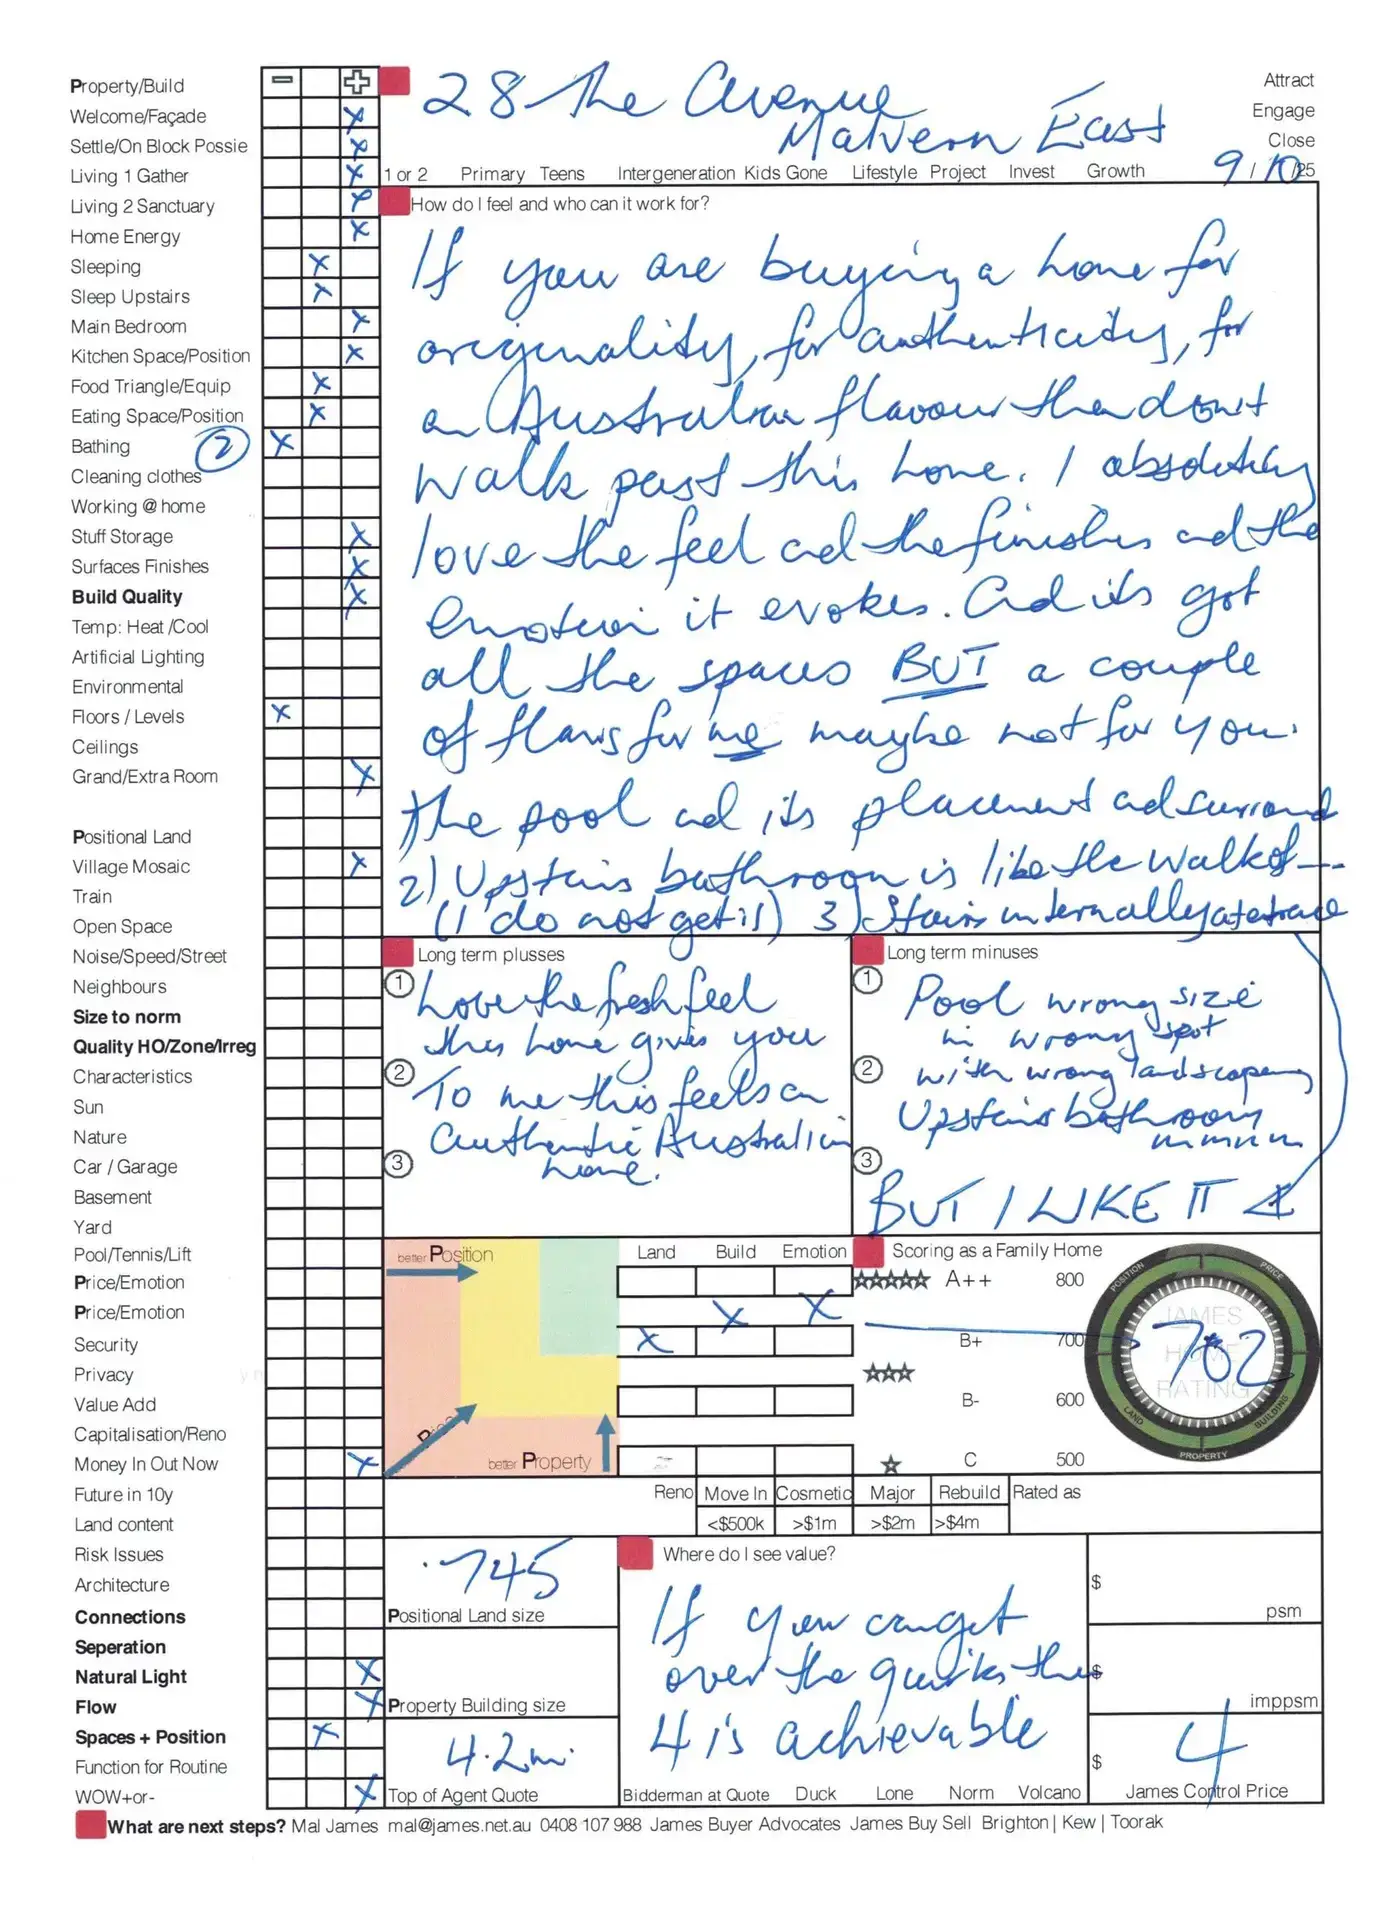 Property/Build
Welcome/Façade
Settle/On Block Possie
Living 1 Gather
Living 2 Sanctuary
Home Energy
Sleeping
Sleep Upstairs
Main Bedroom
Kitchen Space/Position
Food Triangle/Equip
Eating Space/Position
Bathing 2
Cleaning clothes
Working @ home
Stuff Storage
Surfaces Finishes
Build Quality
Temp: Heat /Cool
Artificial Lighting
Environmental
Floors / Levels
Ceilings
Grand/Extra Room
Positional Land
Village Mosaic
Train
Open Space
Noise/Speed/Street
Neighbours
Size to norm
Quality HO/Zone/Irreg
Characteristics
Sun
Nature
Car / Garage
Basement
Yard
Pool/Tennis/Lift
Price/Emotion
Price/Emotion
Security
Privacy
Value Add
Capitalisation/Reno
Money In Out Now
Future in 10y
Land content
Risk Issues
Architecture
Connections
Seperation
Natural Light
Flow
Spaces + Position
Function for Routine
WOW+or-
28 The Avenue
Malvern East
Attract
Engage
Close
1 or 2 Primary Teens Intergeneration Kids Gone Lifestyle Project Invest Growth 9 / 10 /25
How do I feel and who can it work for?
If you are buying a home for
originality, for authenticity, for
an Australian flavour then don't
walk past this home. I absolutely
love the feel and the finishes and the
emotion it evokes. And its got
all the spaces BUT a couple
of flaws for me maybe not for you.
The pool and its placement and surround
2) Upstairs bathroom is like the walk of ---
(I do not get it) 3) Stairs internally
Long term plusses
1 Love the fresh feel
this home gives you
2 To me this feels an
authentic Australian
3 home.
Long term minuses
1 Pool wrong size
in wrong spot
2 with wrong landscaping
Upstairs bathroom
mmmm
3
BUT I LIKE IT
better Position
Price
better Property
Land Build Emotion
Scoring as a Family Home
A++ 800
B+ 700
B- 600
C 500
POSITION PRICE
JAMES
HOME
RATING
LAND BUILDING
PROPERTY
702
Reno Move In Cosmetic Major Rebuild Rated as
<$500k >$1m >$2m >$4m
.745
Positional Land size
Property Building size
4.2mi
Top of Agent Quote
Where do I see value?
If you can get
over the quirks then
4 is achievable
Bidderman at Quote Duck Lone Norm Volcano
$
psm
$
imppsm
$ 4
James Control Price
What are next steps? Mal James mal@james.net.au 0408 107 988 James Buyer Advocates James Buy Sell Brighton | Kew | Toorak